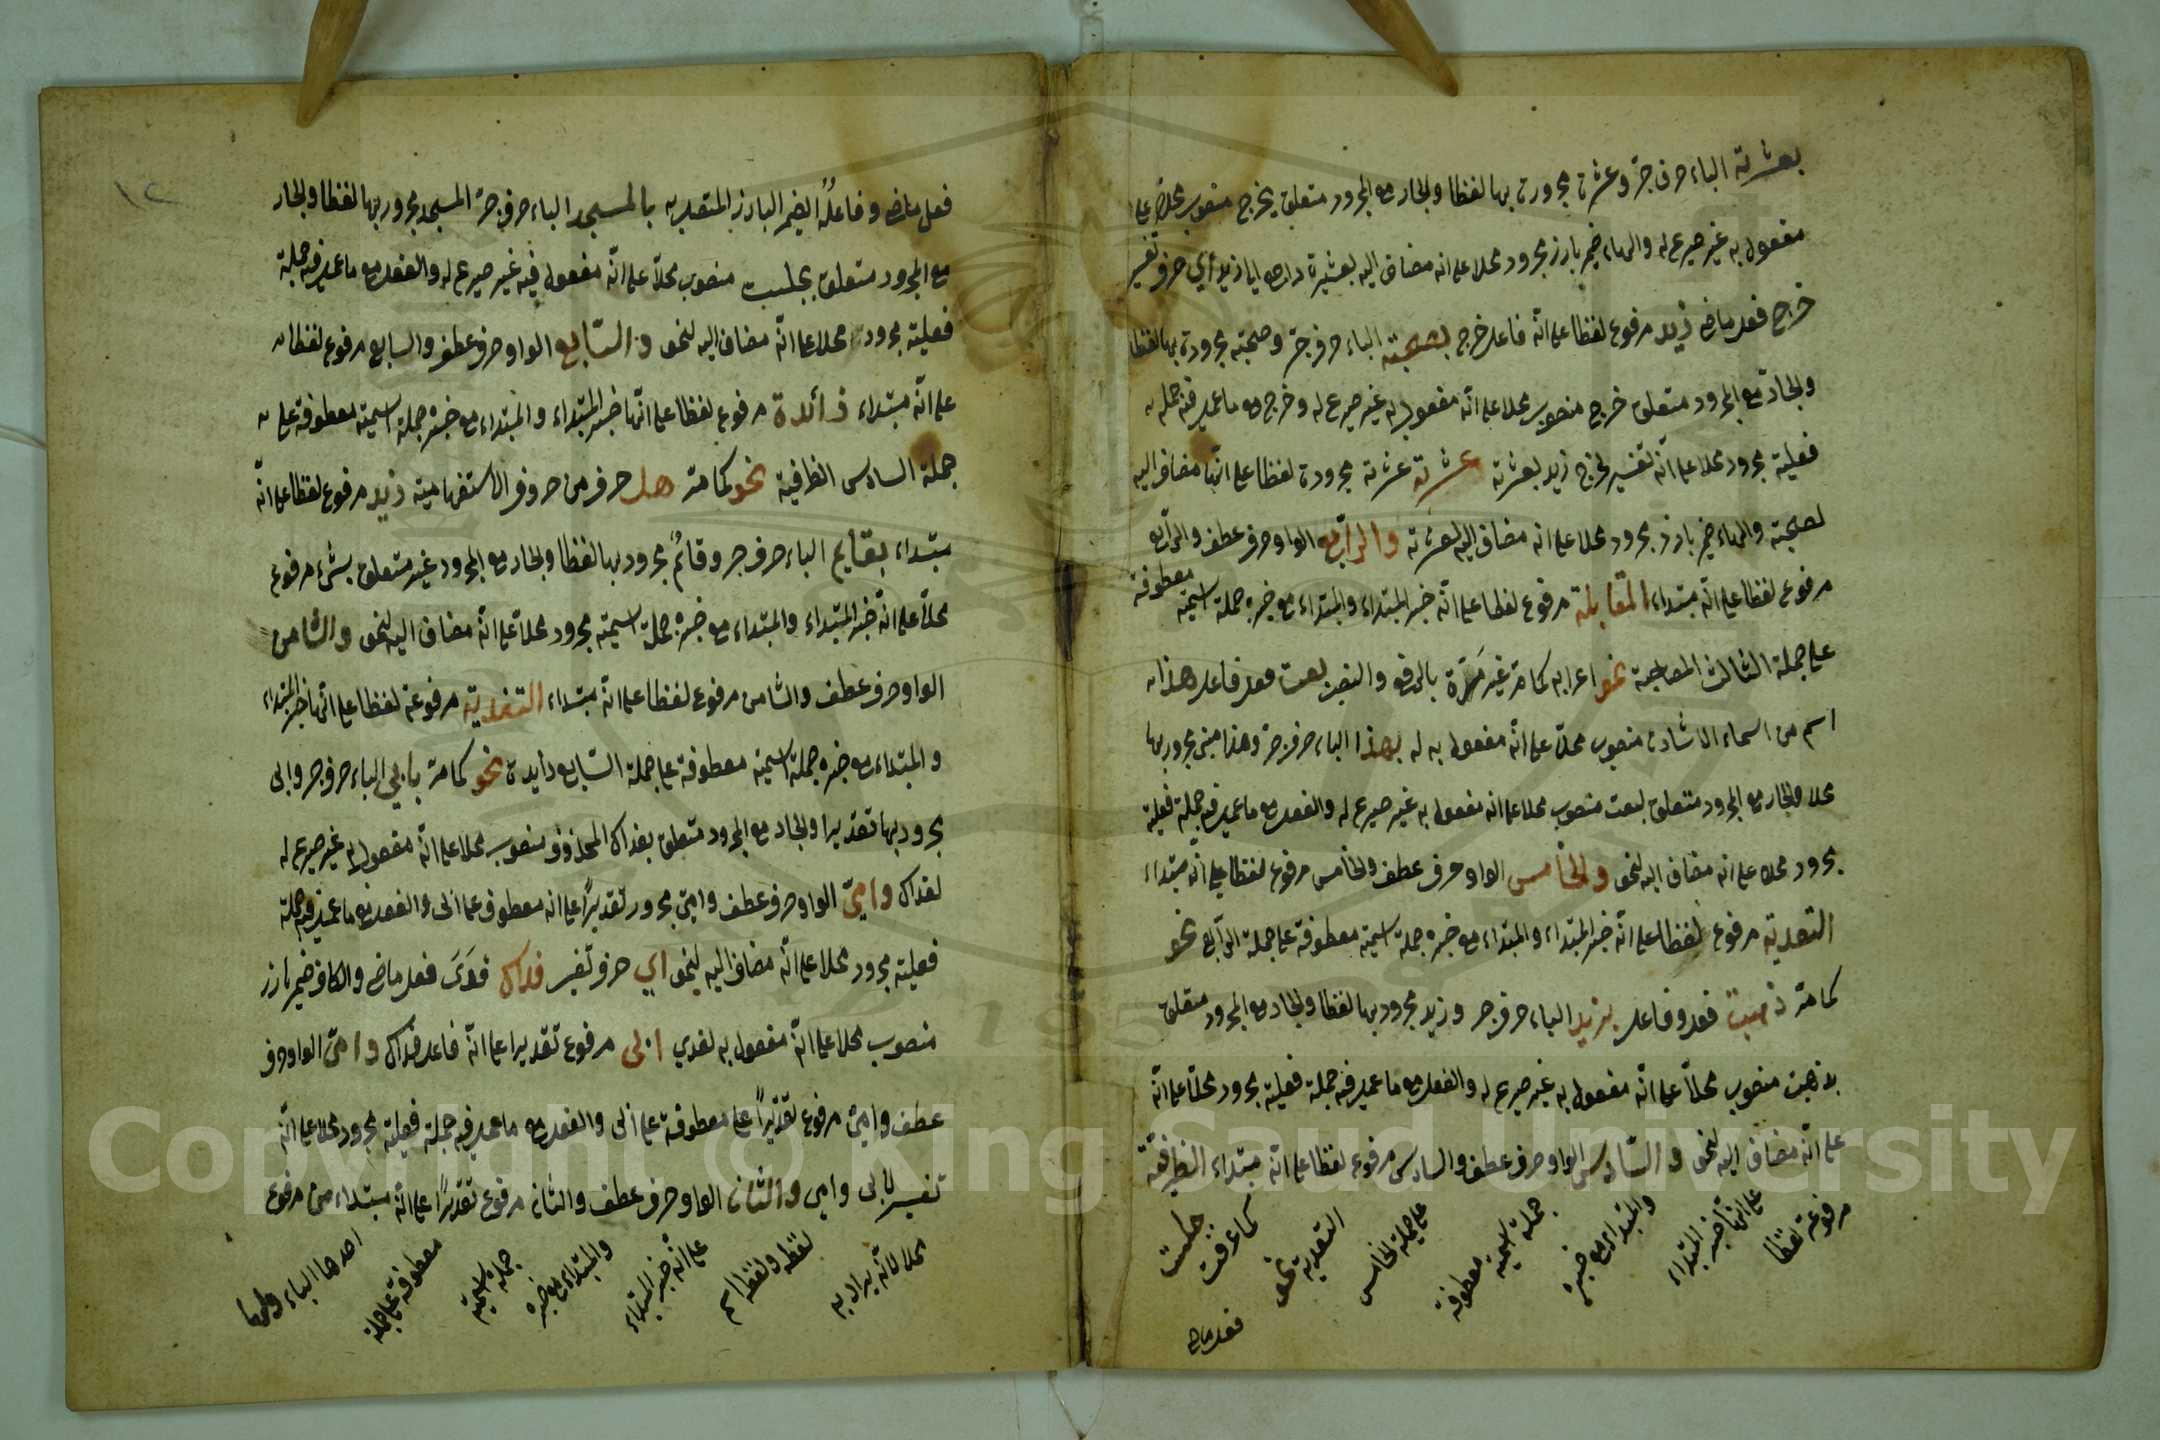 بعشرته الباء حرف جر وعشرة مجرورة بها لفظا والجار مع المجرور متعلق بخرج منصوب محلا على
مفعول به غير صريح له والهاء ضمير بارز مجرور محلا على انه مضاف اليه لعشيرة أي حرف تفسير
خرج فعل ماض زيد مرفوع لفظا على انّه فاعل خرج بصحبته الباء حرف جر وصحبته مجرورة بها لفظا
والجارّ مع المجرور متعلق خرج منصوب محلا على انّه مفعول به غير صريح له وخرج مع ما عمل فيه جملة
فعلية مجرور محلا على انّه تفسير لخرج زيد بعشرته عشرته عشرته مجرورة لفظا على انّها مضاف اليه
لصحبته والهاء ضمير بارز مجرور محلا على انه مضاف اليه لعشرته والرّابع الواو حرف عطف والرّابع
مرفوع لفظا على انّه مبتداء المقابلة مرفوع لفظا على انّه خبر المبتداء والمبتداء مع خبره جملة اسمية معطوفة
على جملة الثالث المصاحبة نحو اعرابه كما مرّ غير مرّة بالرفع والنصب بعت فعل فاعل هذا
اسم من اسماء الاشارة منصوب محلا على انّه مفعول به له بهذا الباء حرف جر وهذا مبنى مجرور بها
محلا والجار مع المجرور متعلق لبعت منصوب محلا على انه مفعول به غير صريح له والفعل مع ما عمل فيه جملة فعلية
مجرور محلا على انه مضاف اليه لنحو والخامس الواو حرف عطف والخامس مرفوع لفظا على انّه مبتداء
التعدية مرفوع لفظا على انّه خبر المبتداء والمبتداء مع خبره جملة اسمية معطوفة على جملة الرّابع نحو
كما مرّ ذهبت فعل وفاعل بزيد الباء حرف جر وزيد مجرور بها لفظا والجار مع المجرور متعلق
بذهبت منصوب محلاّ على انّه مفعول به غير صريح له والفعل مع ما عمل فيه جملة فعلية مجرور محلا على انّه
على انّه مضاف اليه لنحو والسّادس الواو حرف عطف والسادس مرفوع لفظا على انّه مبتداء الظرفية
مرفوعة لفظا
على انّها خبر المبتداء
والمبتداء مع خبره
جملة اسمية معطوفة
على جملة الخامس
التعدية نحو
كما عرفت
جلست
فعل ماض
١٢
فعل ماض وفاعله الضمير البارز المتصل به بالمسجد الباء حرف جر المسجد مجرور بها لفظا والجار
مع المجرور متعلق بجلست منصوب محلا على انّه مفعول فيه غير صريح له والفعل مع ما عمل فيه جملة
فعلية مجرور محلا على انّه مضاف اليه لنحو والسّابع الواو حرف عطف والسابع مرفوع لفظا
على انّه مبتداء زائدة مرفوع لفظا على انّها خبر المبتداء والمبتداء مع خبره جملة اسمية معطوفة على
جملة السادس الظرفية نحو كما مرّ هل حرف من حروف الاستفهامية زيد مرفوع لفظا على انّه
مبتداء بقايم الباء حرف جر وقائم مجرور بها لفظا والجار مع المجرور غير متعلق بشىء مرفوع
محلا على انّه خبر المبتداء والمبتداء مع خبره جملة اسمية مجرور محلا على انّه مضاف اليه لنحو والثامن
الواو حرف عطف والثامن مرفوع لفظا على انّه مبتداء التفدية مرفوعة لفظا على انّها خبر المبتداء
والمبتداء مع خبره جملة اسمية معطوفة على جملة السّابع زايدة نحو كما مرّ بابي الباء حرف جر وابى
مجرور بها تقديرا والجار مع المجرور متعلق بفداك المحذوف منصوب محلا على انّه مفعول به غير صريح له
لفداك وامّى الواو حرف عطف وامّى مجرور تقديرًا على انه معطوف على ابى والفعل مع ما عمل فيه جملة
فعلية مجرور محلا على انّه مضاف اليه لنحو اي حرف تفسير فداك فدى فعل ماض والكاف ضمير بارز
منصوب محلا على انّه مفعول به لفدي ابى مرفوع تقديرا على انّه فاعل فداك وامّى الواو حرف
عطف وامّى مرفوع تقديرًا على معطوفة على ابى والفعل مع ما عمل فيه جملة فعلية مجرور محلا على انّه
تفسير لابى وامى والثانى الواو حرف عطف والثانى مرفوع تقديرًا على انّه مبتداء من مرفوع
محلا لانّه يراد به
لفظه ولفظ اسم
على انّه خبر المبتداء
والمبتداء مع خبره
جملة اسمية
معطوفة على جملة
احدها الباء